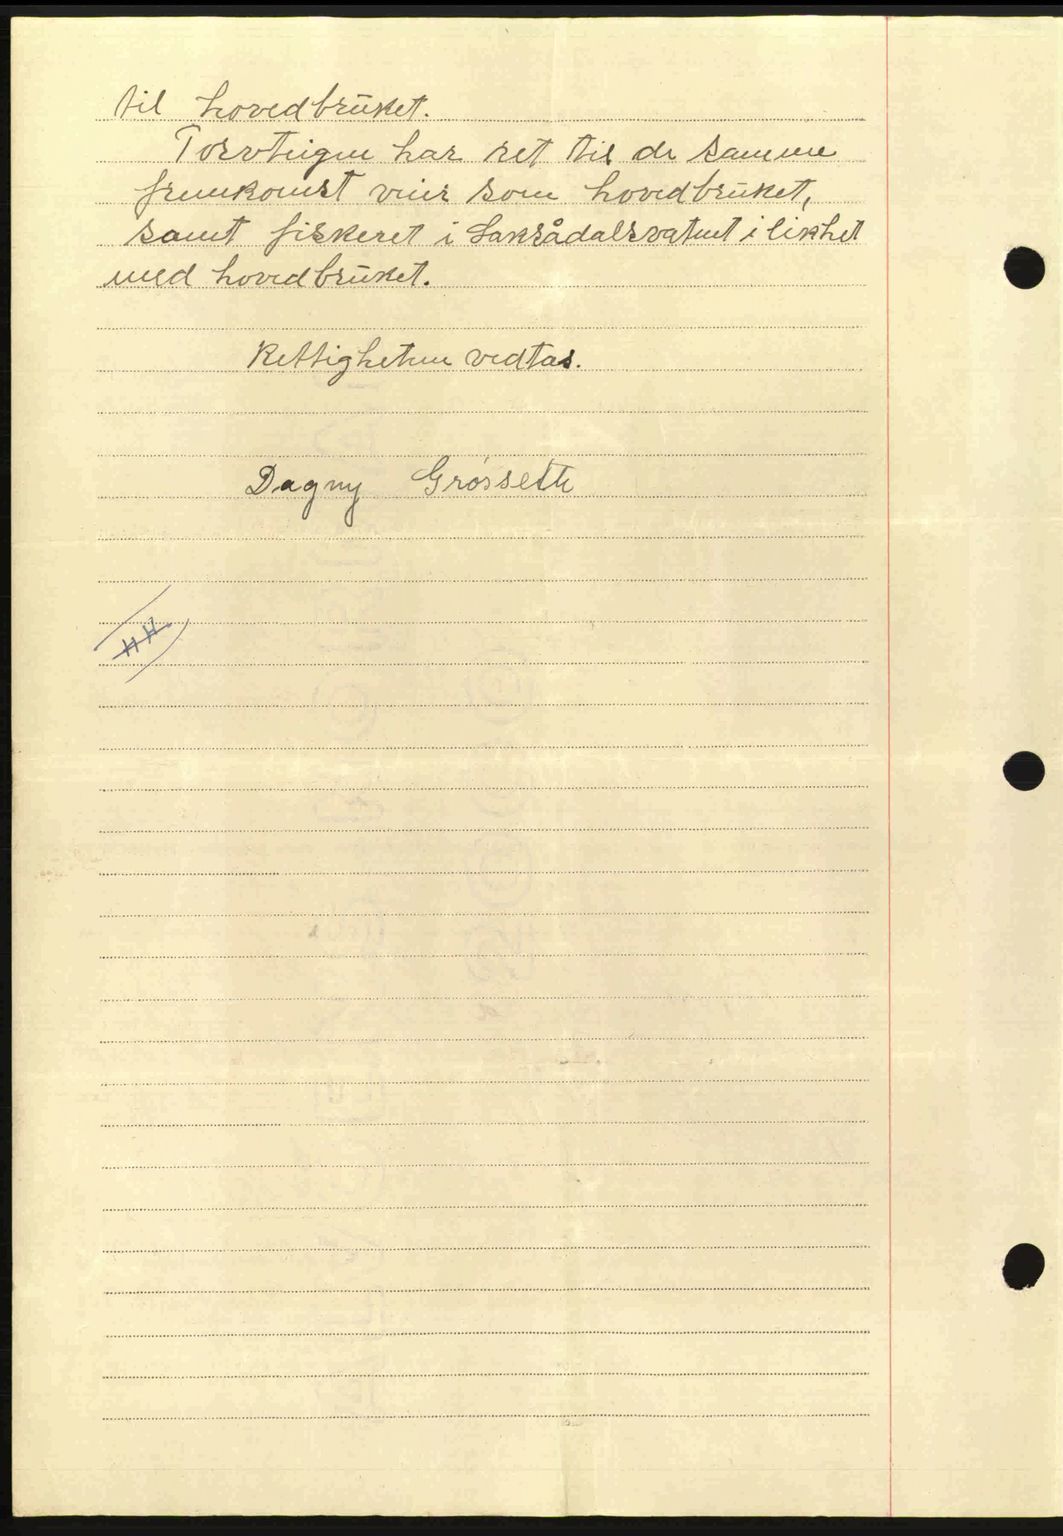 til hovedbrüket.
Torvteigen har ret til de samme
fremkomst veier som hovedbrüket,
samt fiskeret i Laksådalsvatnet i likhet
med hovedbrüket.
Rettigheten vedtas.
Dagny Grøsseth